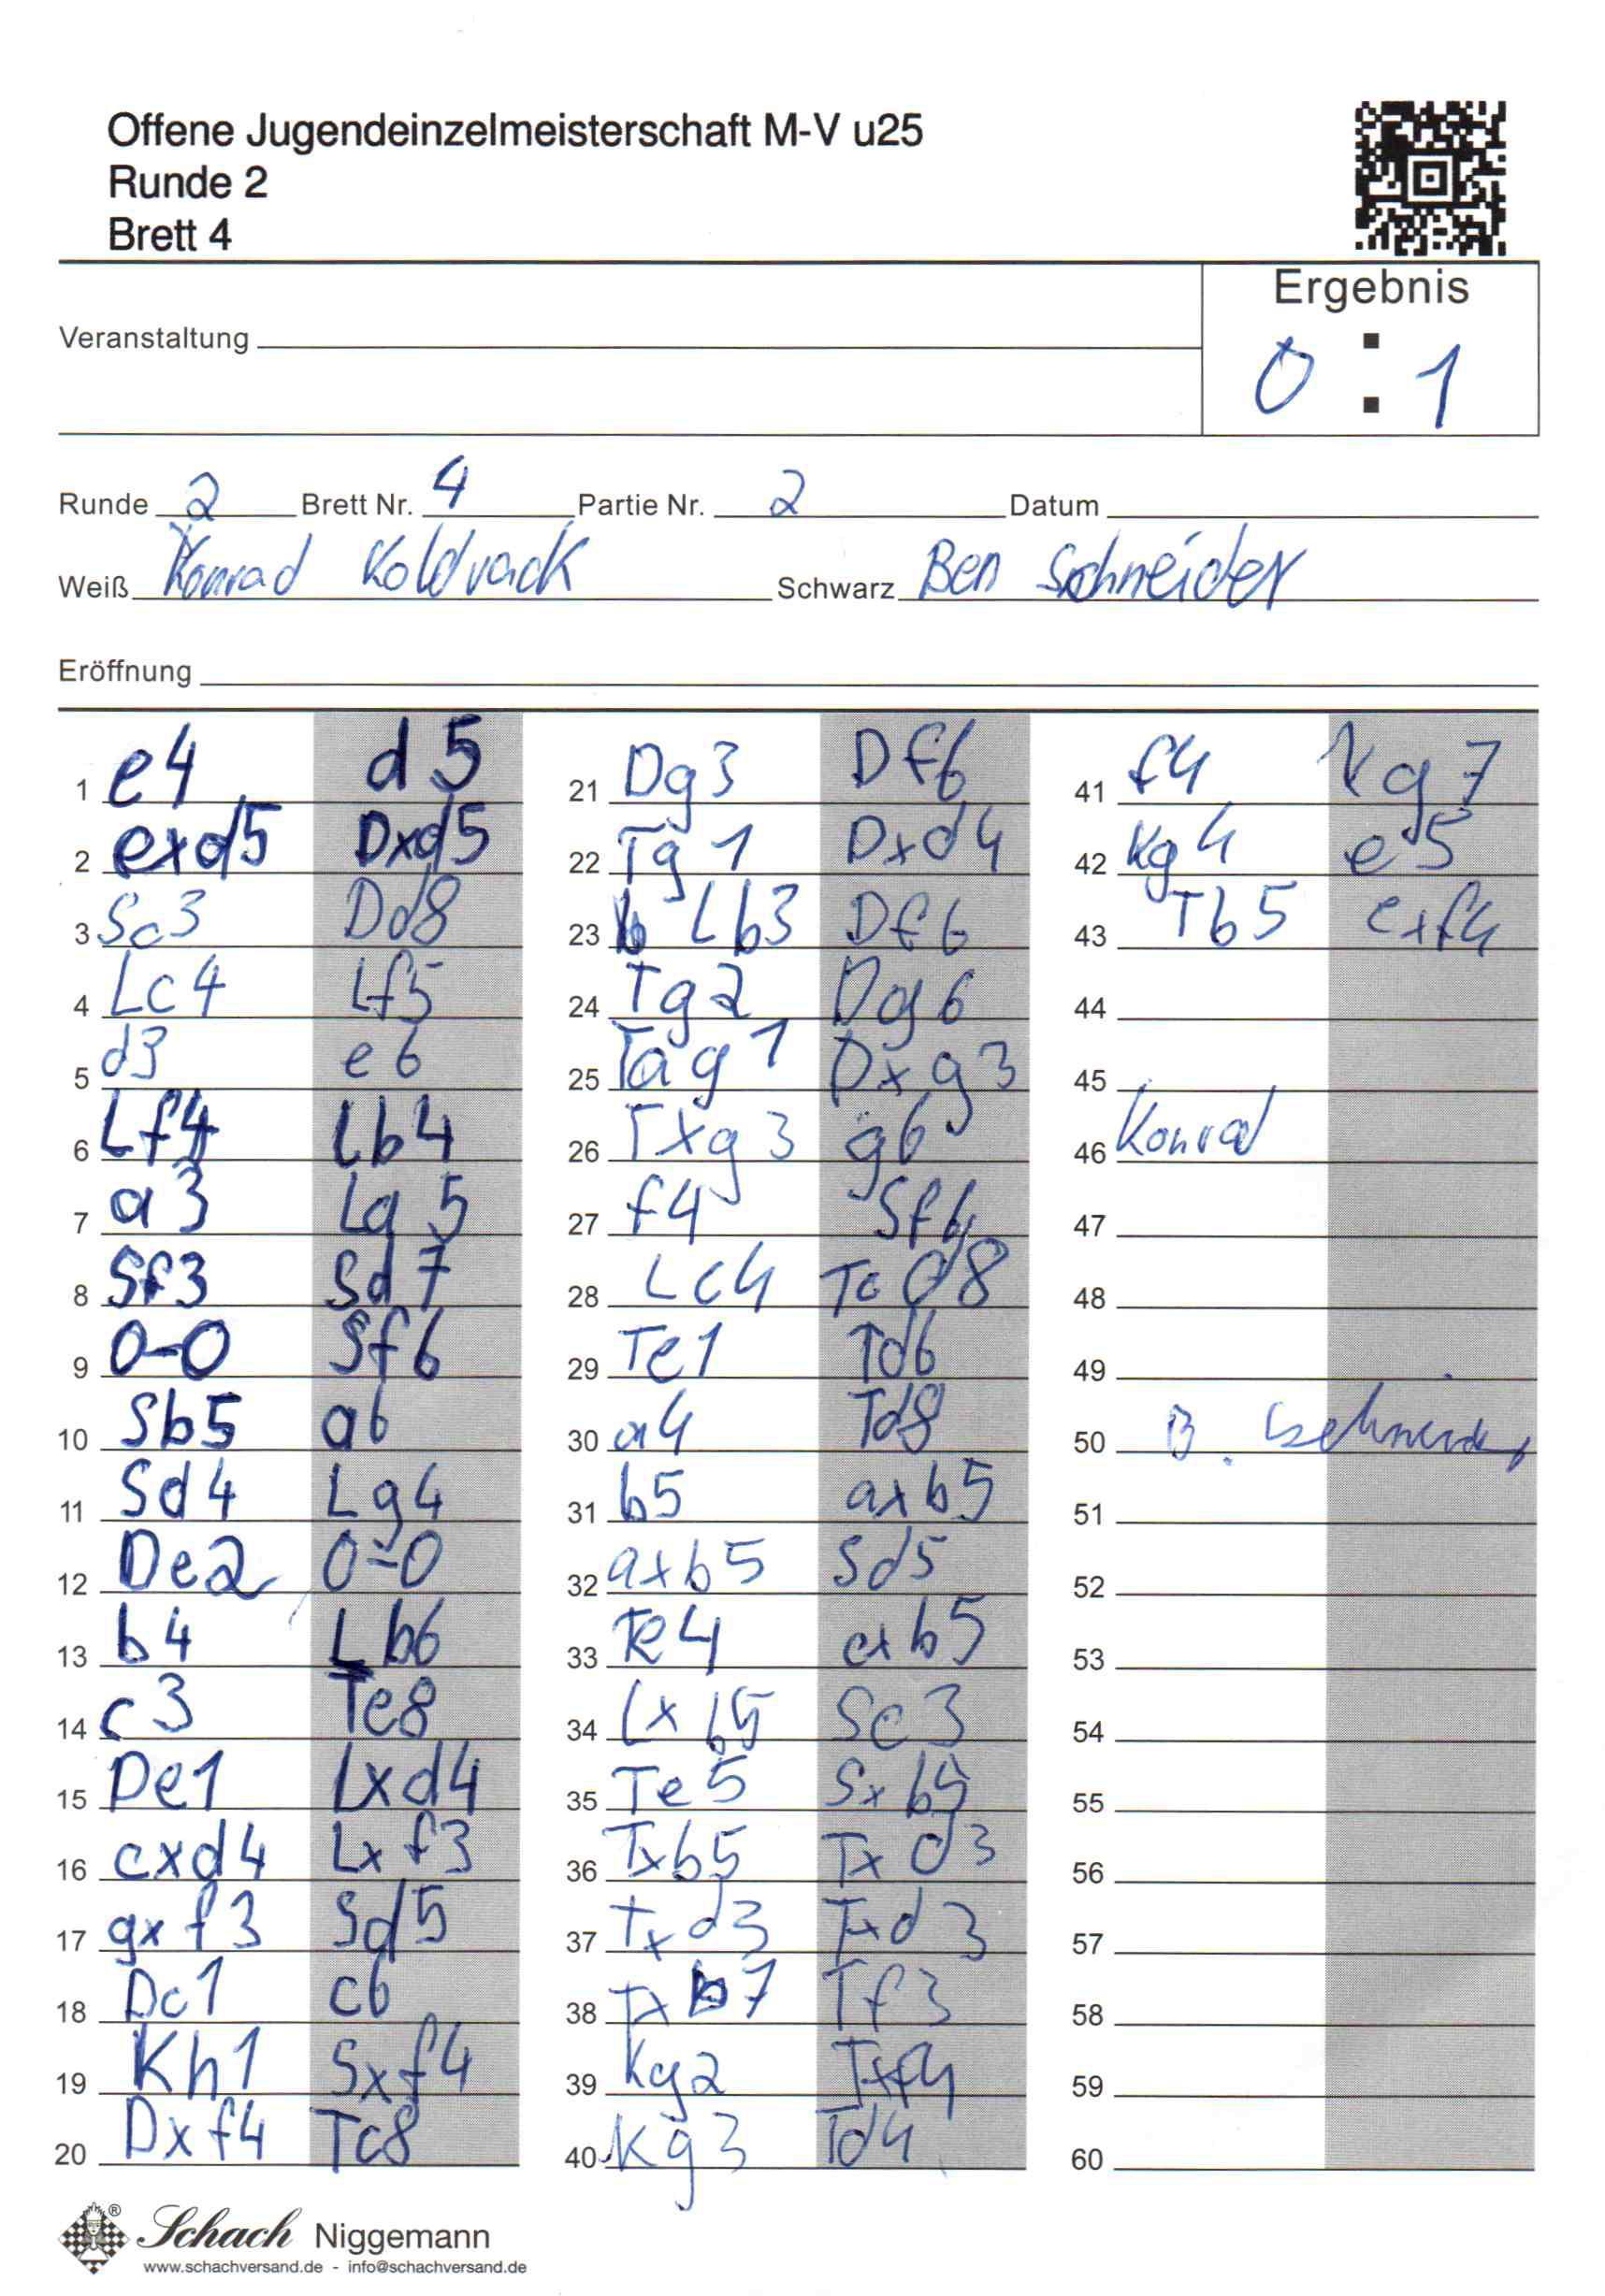 Offene Jugendeinzelmeisterschaft M-V u25
Runde 2
Brett 4
Ergebnis
Veranstaltung
0 : 1
Runde 2 Brett Nr. 4 Partie Nr. 2 Datum
Weiß Konrad Koldrack Schwarz Ben Schneider
Eröffnung
1 e4 d5
2 exd5 Dxd5
3 Sc3 Dd8
4 Lc4 Lf5
5 d3 e6
6 Lf4 Lb4
7 a3 La5
8 Sf3 Sd7
9 0-0 Sf6
10 Sb5 a6
11 Sd4 Lg4
12 De2 0-0
13 b4 Lb6
14 c3 Te8
15 De1 Lxd4
16 cxd4 Lxf3
17 gxf3 Sd5
18 Dc1 c6
19 Kh1 Sxf4
20 Dxf4 Tc8
21 Dg3 Df6
22 Tg1 Dxd4
23 Lb3 Df6
24 Tg2 Dg6
25 Tag1 Dxg3
26 Txg3 g6
27 f4 Sf6
28 Lc4 Tcd8
29 Te1 Td6
30 a4 Td8
31 b5 axb5
32 axb5 Sd5
33 Te4 cxb5
34 Lxb5 Sc3
35 Te5 Sxb5
36 Txb5 Txd3
37 Txd3 Txd3
38 Txb7 Tf3
39 Kg2 Txf4
40 Kg3 Td4
41 f4 Kg7
42 Kg4 e5
43 Tb5 exf4
44
45
46 Konrad
47
48
49
50 B. Schneider
51
52
53
54
55
56
57
58
59
60
Schach Niggemann
www.schachversand.de - info@schachversand.de